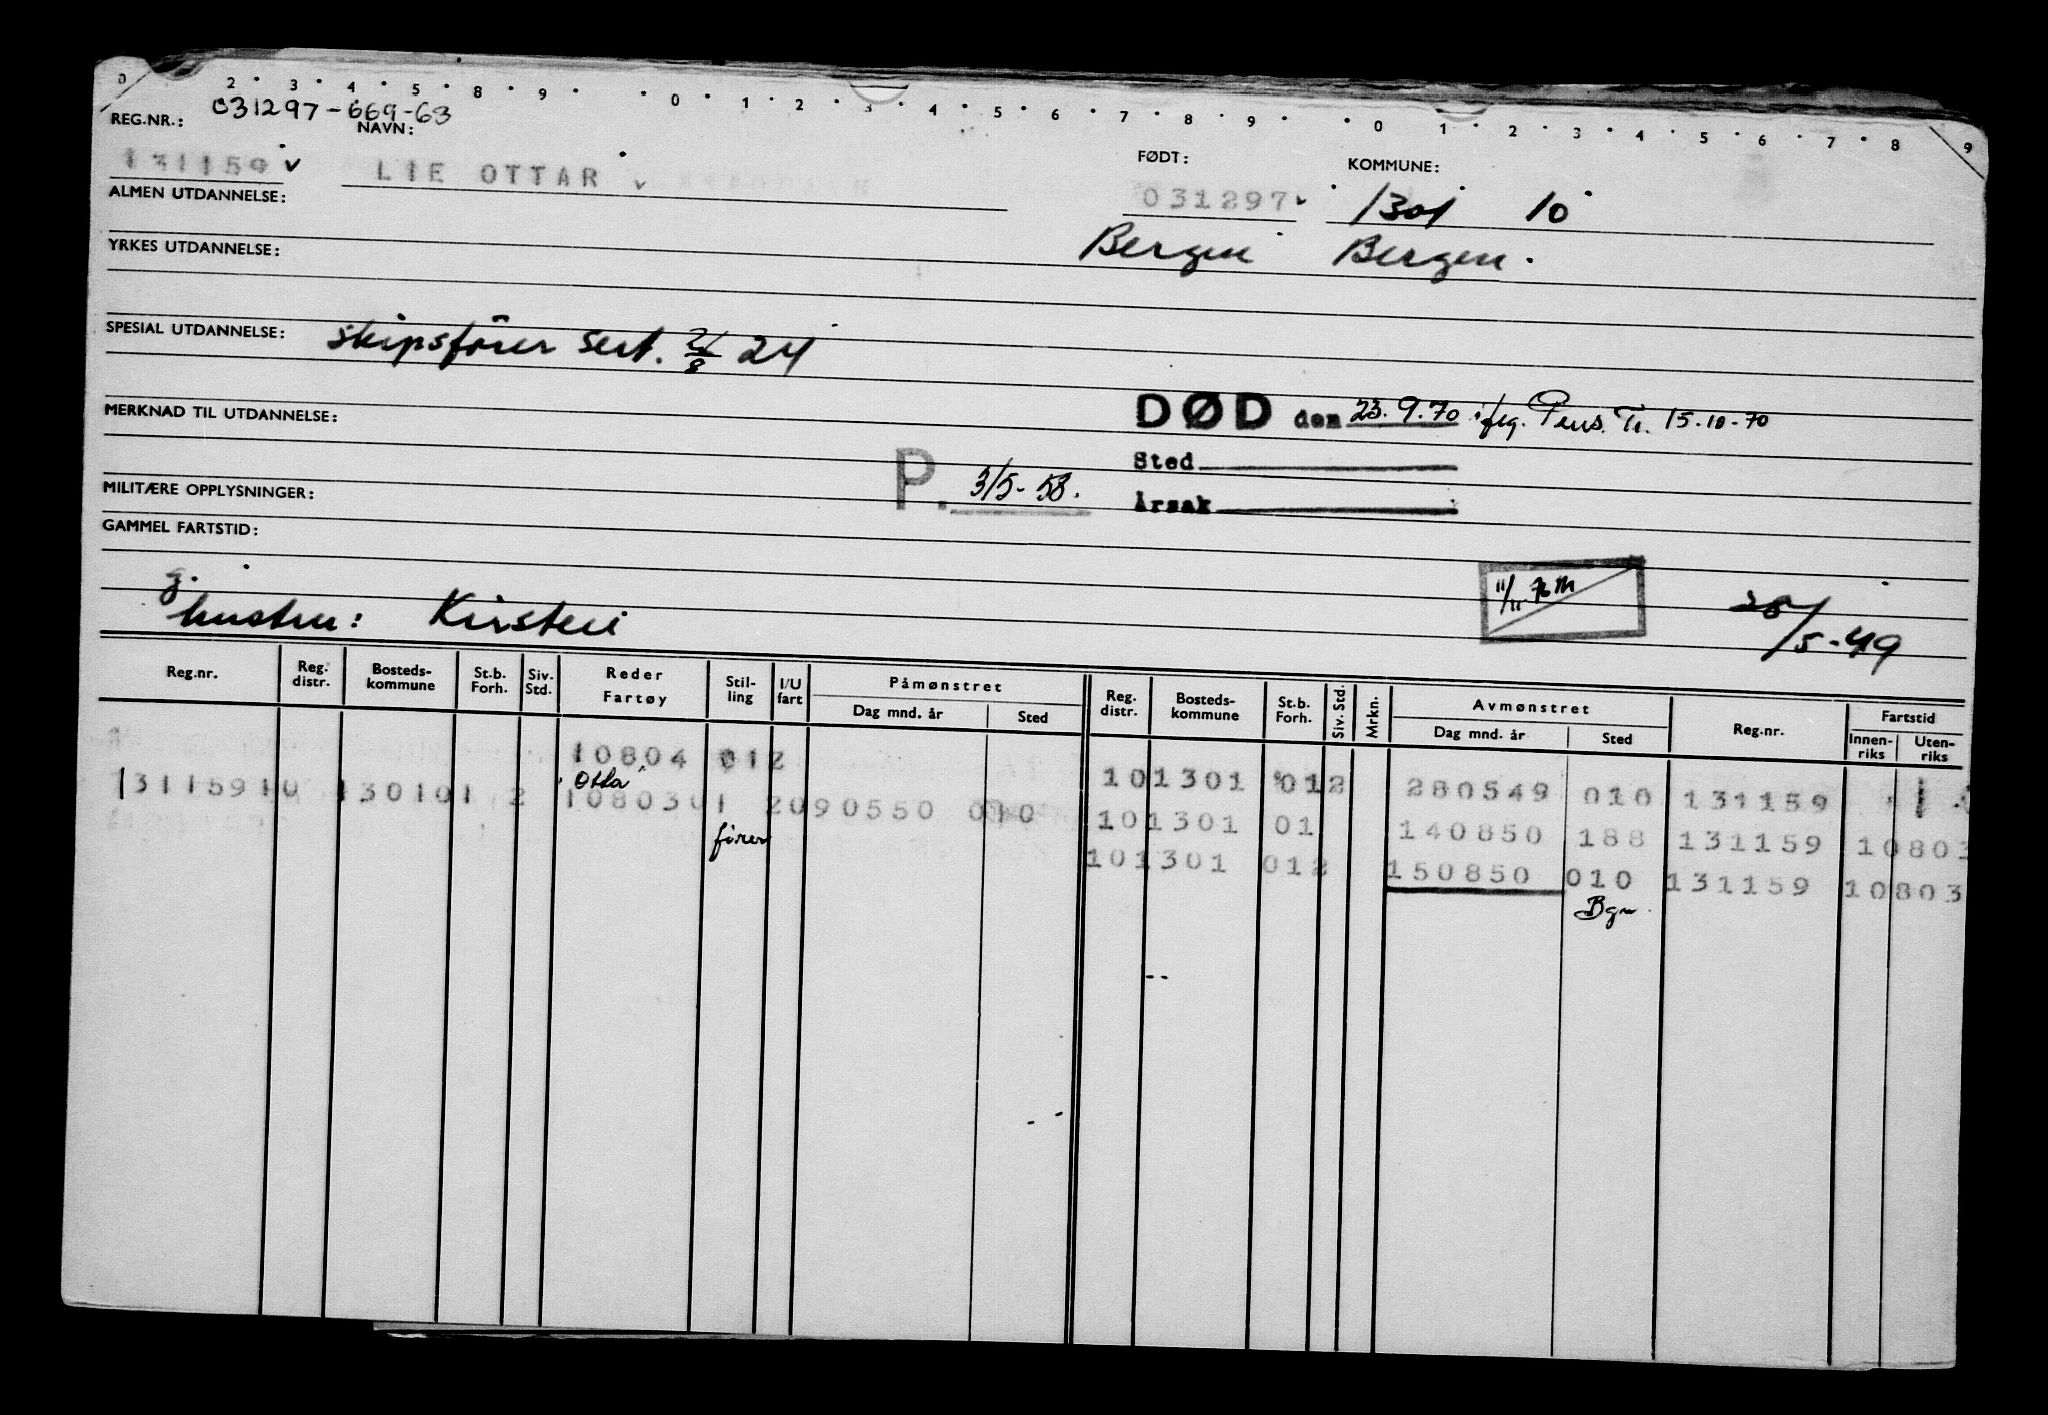 0 2 3 4 5 8 9 0 1 2 3 4 5 6 7 8 9 0 1 2 3 4 5 6 7 8 9
REG.NR.: 031297-669-63 NAVN: FØDT: KOMMUNE:
131159 v LIE OTTAR v 031297 v 1301 10
ALMEN UTDANNELSE: Bergen Bergen.
YRKES UTDANNELSE:
SPESIAL UTDANNELSE: skipsfører sert. 2/8 24
MERKNAD TIL UTDANNELSE: DØD den 23.9.70 iflg. Pens. Tr. 15-10-70
Sted
MILITÆRE OPPLYSNINGER: P. 3/5-58. Årsak
GAMMEL FARTSTID:
11/11
g. hustru: Kirsten 28/5-49
Reg.nr. Reg. distr. Bosteds-kommune St.b. Forh. Siv. Std. Reder Fartøy Stil-ling I/U fart Påmønstret Dag mnd. år Sted Reg. distr. Bosteds-kommune St.b. Forh. Siv. Std. Mrkn. Avmønstret Dag mnd. år Sted Reg.nr. Fartstid Innen-riks Uten-riks
10804 012 101301 012 280549 010 131159 1
"Otta"
13115910 130101 2 1080301 2090550 010 101301 01 140850 188 131159 10803
fører 101301 012 150850 010 131159 10803
Bgn